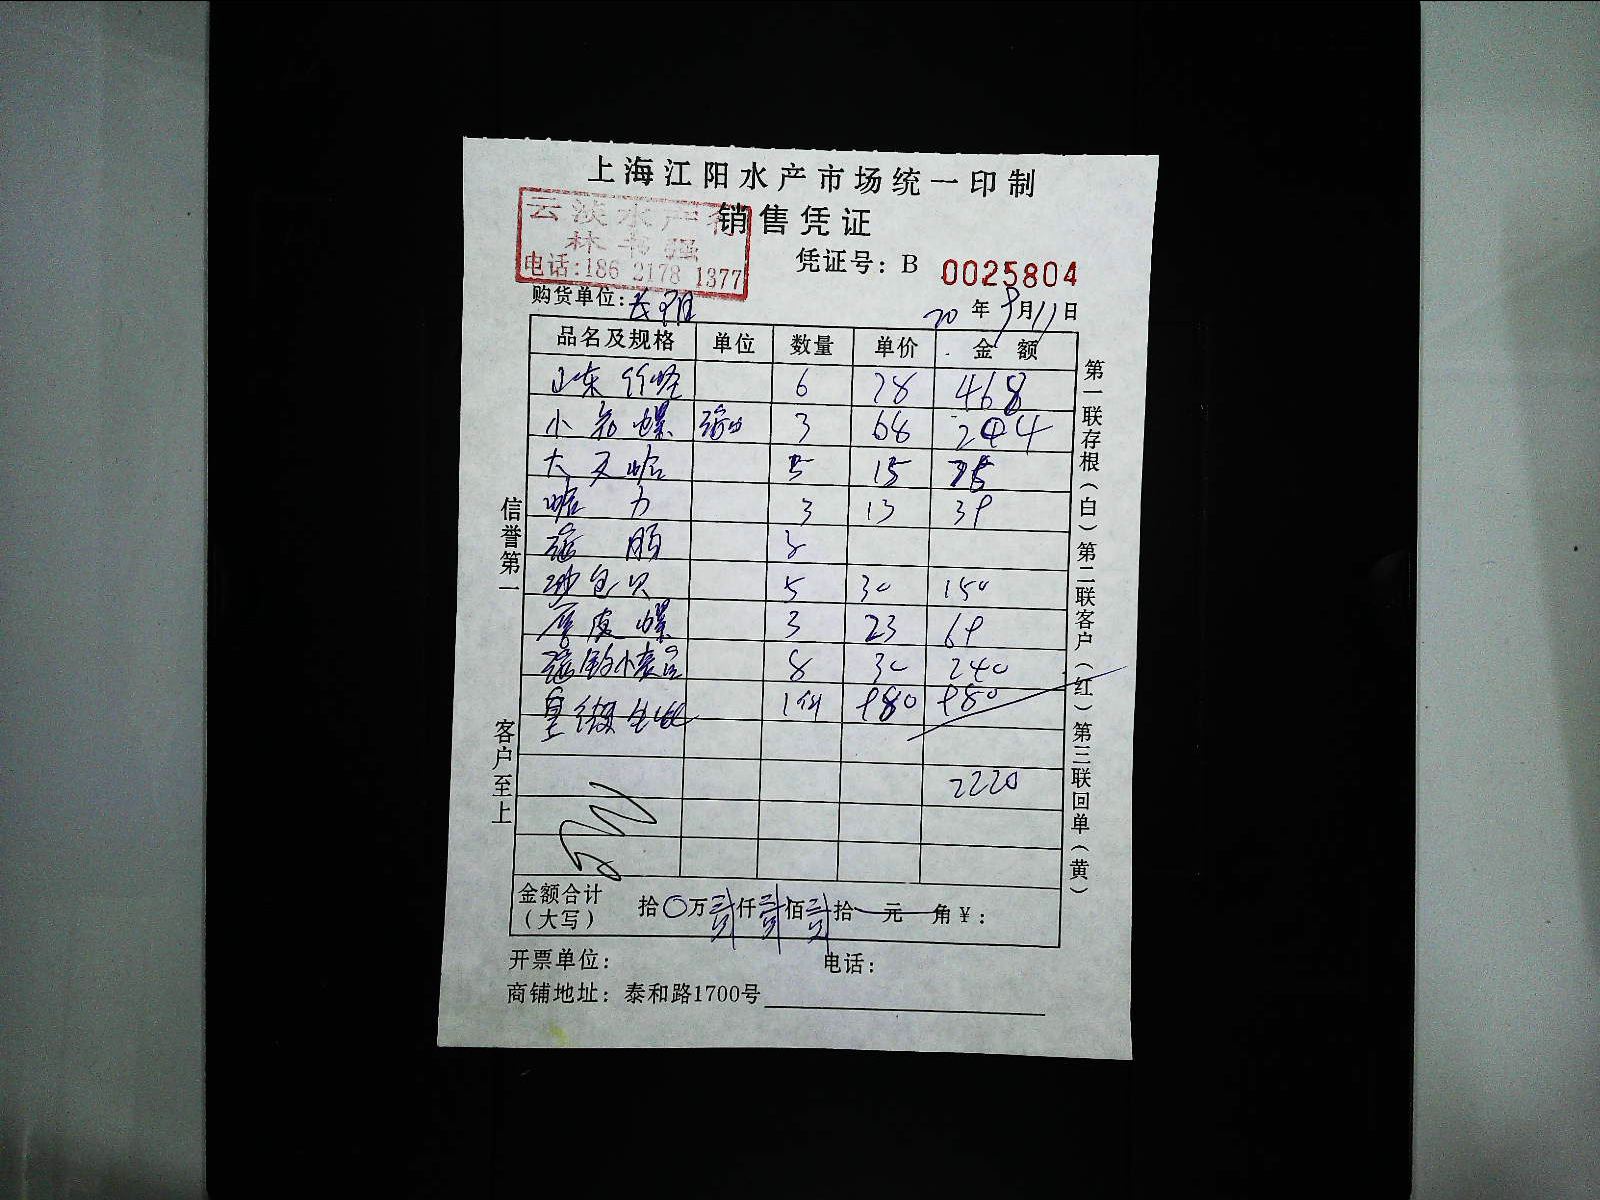 上海江阳水产市场统一印制
销售凭证
云淡水产行
林书强
电话:186 2178 1377
凭证号: B 0025804
购货单位:
20 年 9 月 11 日
品名及规格 单位 数量 单价 金 额
山东竹蛏 6 78 468
小 螺 3 68 244
大文蛤 5 15 75
蛤 力 3 13 39
3
沙包贝 5 30 150
厚皮螺 3 23 69
8 30 240
皇 980 980
2220
金额合计
(大写)
拾〇万贰仟贰佰贰拾 元 角 ¥:
开票单位: 电话:
商铺地址: 泰和路1700号
信誉第一
客户至上
第一联存根(白)第二联客户(红)第三联回单(黄)